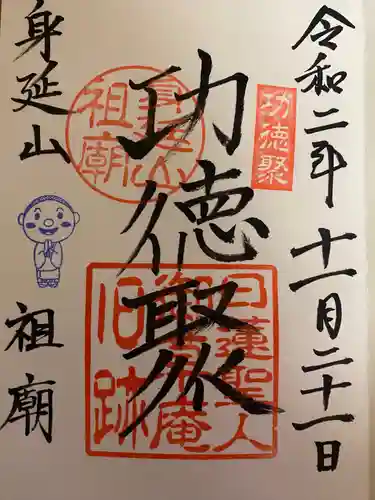 令和二年十一月二十一日
功徳聚
功徳聚
身延山
祖廟
日蓮聖人
御草庵
旧跡
身延山
祖廟